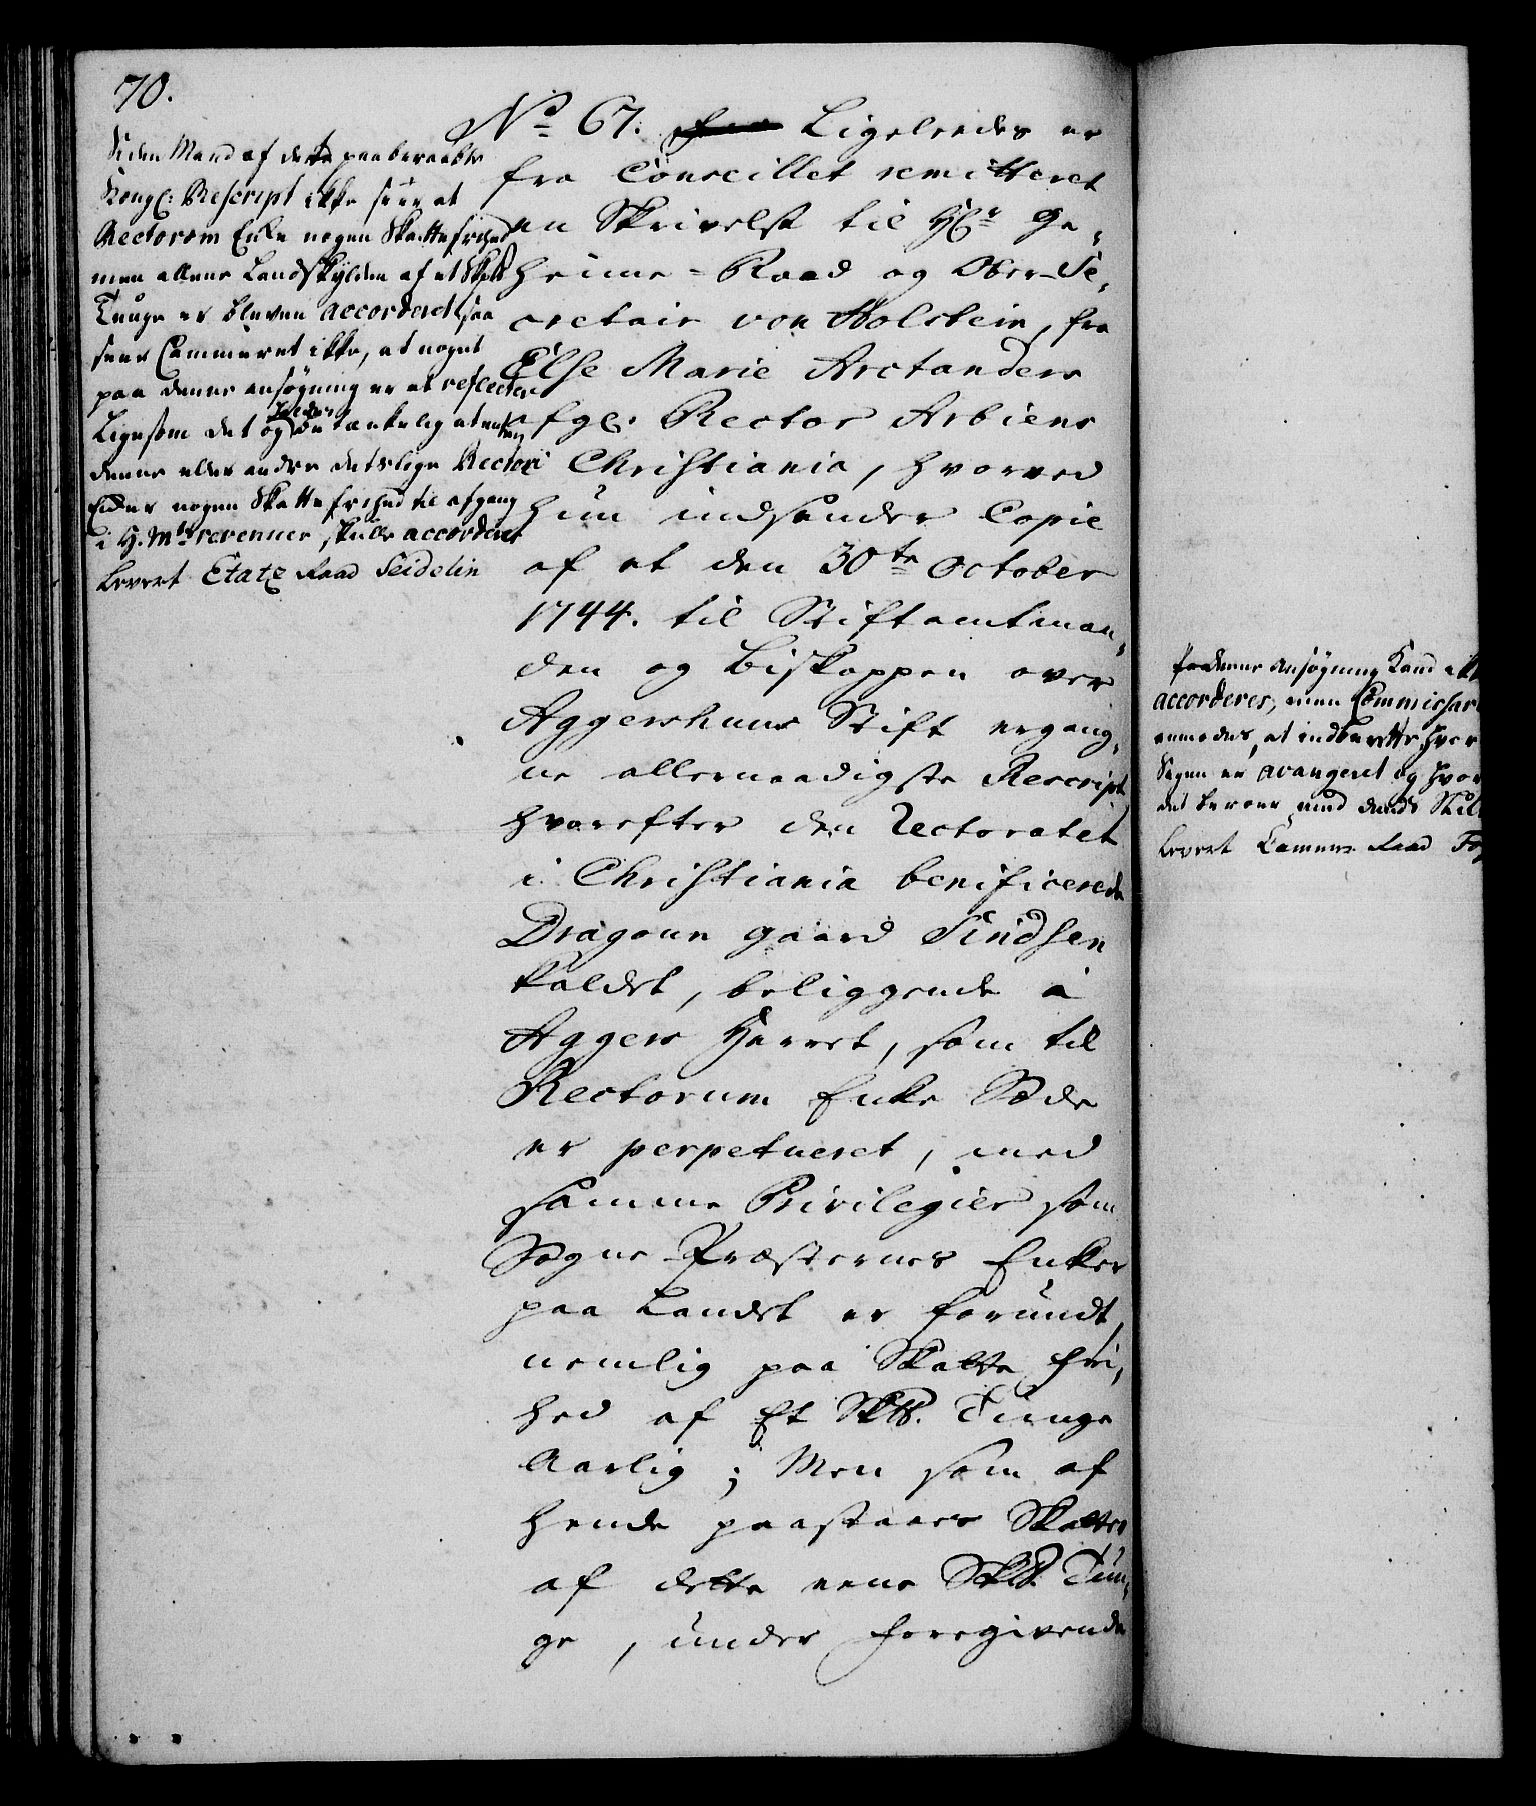 70.
Siden Mand af dette paaberaabte
Kongl: Rescript ikke seer at
Rectorum Enke nogen Skattefrihed
men allene Landskylden af et Skpd
Tunge er bleven accorderet, saa
seer Cammeret ikke, at noget
paa denne ansøgning er at reflectere
Ligesom det og heller er tænkelig at enten
denne eller andre deslige Rectors
Enker nogen Skattefrihed til afgang
i H. Mts revenuer skulle accorderes
Levert Etatz Raad Seidelin
No 67. Ligeledes er
fra Conseillet remitteret
en Skrivelse til Hr Ge-
heime-Raad og Ober-Se-
cretair von Holstein, fra
Else Marie Arctander
afgl. Rector Arbiens
i Christiania, hvorved
hun indsender Copie
af et den 30te October
1744. til Stiftamtman-
den og Biskoppen over
Aggershuus Stift ergang-
ne allernaadigste Rescript
hvorefter den Rectoratet
i Christiania benificerede
Dragoun gaard Sindsen
kaldet, beliggende i
Aggers Herret, som til
Rectorum Enke Sæde
er perpetueret, med
samme Privilegier som
Sogne-Præsternes Enker
paa Landet er forundt,
nemlig paa Skatte fri-
hed af Et Skpd. Tunge
Aarlig; Men som af
hende paastaaes Skatter
af dette eene Skpd. Tun-
ge, under foregivende
Paa denne ansøgning Kand ikke
accorderes, men Commissar
anmodes, at indberette, hvor
Sagen er avangeret og hvor
det beroer med dends
Levert Cammer Raad